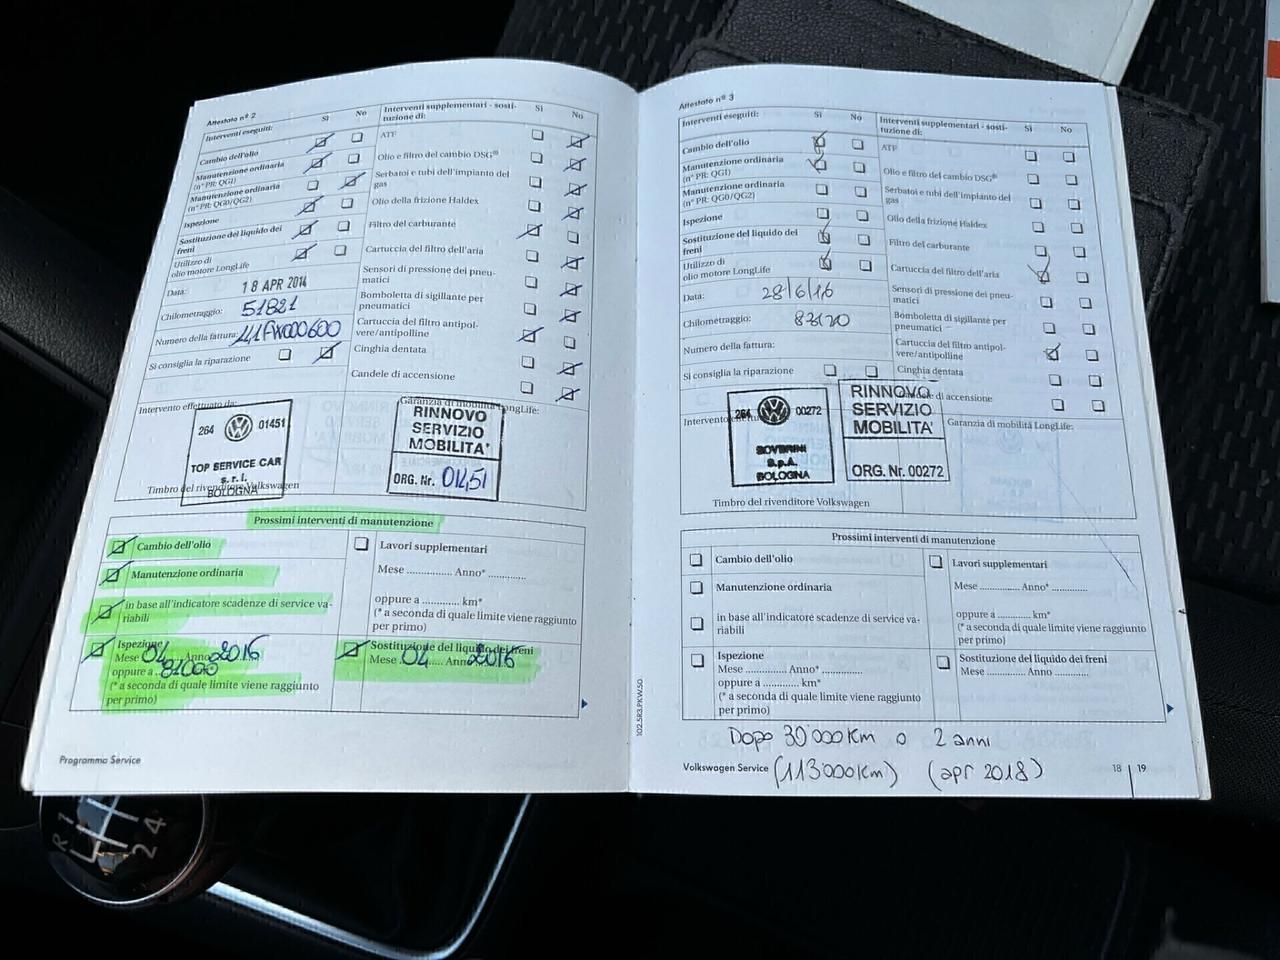 Attestato nº 2
Interventi eseguiti: Sì No
Cambio dell'olio
Manutenzione ordinaria
(nº PR: QG1)
Manutenzione ordinaria
(nº PR: QG0/QG2)
Ispezione
Sostituzione del liquido dei
freni
Utilizzo di
olio motore LongLife
Data: 18 APR 2014
Chilometraggio: 51821
Numero della fattura: 41FW000600
Si consiglia la riparazione
Interventi supplementari - sosti-
tuzione di: Sì No
ATF
Olio e filtro del cambio DSG®
Serbatoi e tubi dell'impianto del
gas
Olio della frizione Haldex
Filtro del carburante
Cartuccia del filtro dell'aria
Sensori di pressione dei pneu-
matici
Bomboletta di sigillante per
pneumatici
Cartuccia del filtro antipol-
vere/antipolline
Cinghia dentata
Candele di accensione
Intervento effettuato da:
264 01451
TOP SERVICE CAR
s.r.l.
BOLOGNA
Timbro del rivenditore Volkswagen
Garanzia di mobilità LongLife:
RINNOVO
SERVIZIO
MOBILITA'
ORG. Nr. 01451
Prossimi interventi di manutenzione
Cambio dell'olio
Manutenzione ordinaria
in base all'indicatore scadenze di service va-
riabili
Ispezione
Mese 04 Anno 2016
oppure a 81000
(* a seconda di quale limite viene raggiunto
per primo)
Lavori supplementari
Mese ............... Anno* .............
oppure a ............ km*
(* a seconda di quale limite viene raggiunto
per primo)
Sostituzione del liquido dei freni
Mese 04 Anno 2016
Programma Service
Attestato nº 3
Interventi eseguiti: Sì No
Cambio dell'olio
Manutenzione ordinaria
(nº PR: QG1)
Manutenzione ordinaria
(nº PR: QG0/QG2)
Ispezione
Sostituzione del liquido dei
freni
Utilizzo di
olio motore LongLife
Data: 28/6/16
Chilometraggio:
Numero della fattura:
Si consiglia la riparazione
Interventi supplementari - sosti-
tuzione di: Sì No
ATF
Olio e filtro del cambio DSG®
Serbatoi e tubi dell'impianto del
gas
Olio della frizione Haldex
Filtro del carburante
Cartuccia del filtro dell'aria
Sensori di pressione dei pneu-
matici
Bomboletta di sigillante per
pneumatici
Cartuccia del filtro antipol-
vere/antipolline
Cinghia dentata
Candele di accensione
264 00272
S.p.A.
BOLOGNA
Timbro del rivenditore Volkswagen
RINNOVO
SERVIZIO
MOBILITA'
ORG. Nr. 00272
Garanzia di mobilità LongLife:
Prossimi interventi di manutenzione
Cambio dell'olio
Manutenzione ordinaria
in base all'indicatore scadenze di service va-
riabili
Ispezione
Mese ............... Anno* ...............
oppure a ............... km*
(* a seconda di quale limite viene raggiunto
per primo)
Lavori supplementari
Mese ............... Anno* .............
oppure a ............ km*
(* a seconda di quale limite viene raggiunto
per primo)
Sostituzione del liquido dei freni
Mese ............... Anno ...............
102.5R3.PKW.50
Dopo 30'000 Km o 2 anni
(113'000 Km) (apr 2018)
Volkswagen Service 18 | 19
R 1
2 4